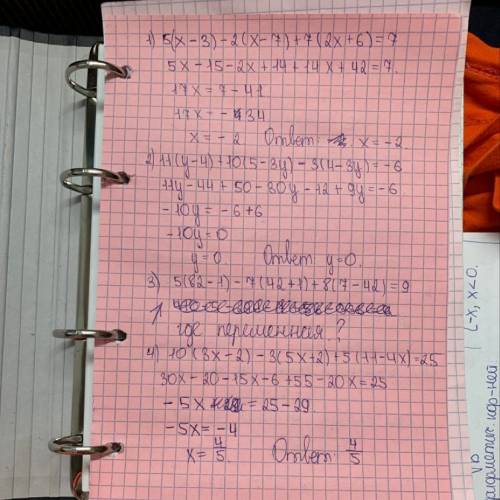 1) 5(x-3)-2(x-7)+7(2x+6)=7
5x-15-2x+14+14x+42=7.
17x=7-41
17x=-34
x=-2 Ответ: x=-2.
2) 11(y-4)+10(5-3y)-3(4-3y)=-6
11y-44+50-30y-12+9y=-6
-10y=-6+6
-10y=0
y=0. Ответ: y=0.
3) 5(82-1)-7(42+1)+8(7-42)=9
где переменная?
4) 10(3x-2)-3(5x+2)+5(11-4x)=25
30x-20-15x-6+55-20x=25
-5x=25-29
-5x=-4
x=4/5. Ответ: 4/5
(-x, x<0.